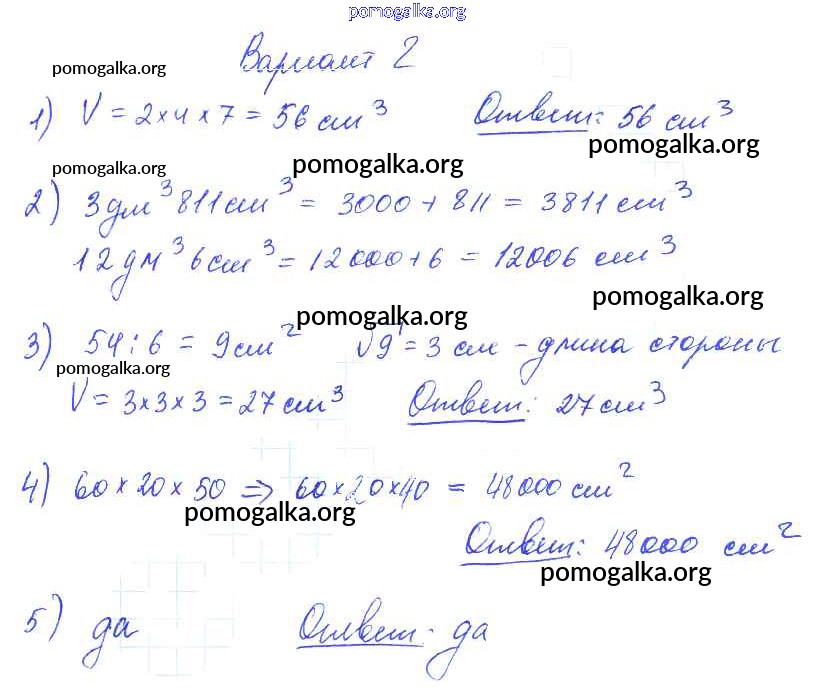 pomogalka.org
Вариант 2
pomogalka.org
1) V = 2×4×7 = 56 см³ Ответ: 56 см³
pomogalka.org
pomogalka.org
pomogalka.org
2) 3 дм³ 811 см³ = 3000 + 811 = 3811 см³
12 дм³ 6 см³ = 12000 + 6 = 12006 см³
pomogalka.org
pomogalka.org
3) 54 : 6 = 9 см² √9 = 3 см - длина стороны
pomogalka.org
V = 3×3×3 = 27 см³ Ответ: 27 см³
4) 60×20×50 ⇒ 60×20×40 = 48000 см²
pomogalka.org
Ответ: 48000 см²
pomogalka.org
5) да Ответ: да